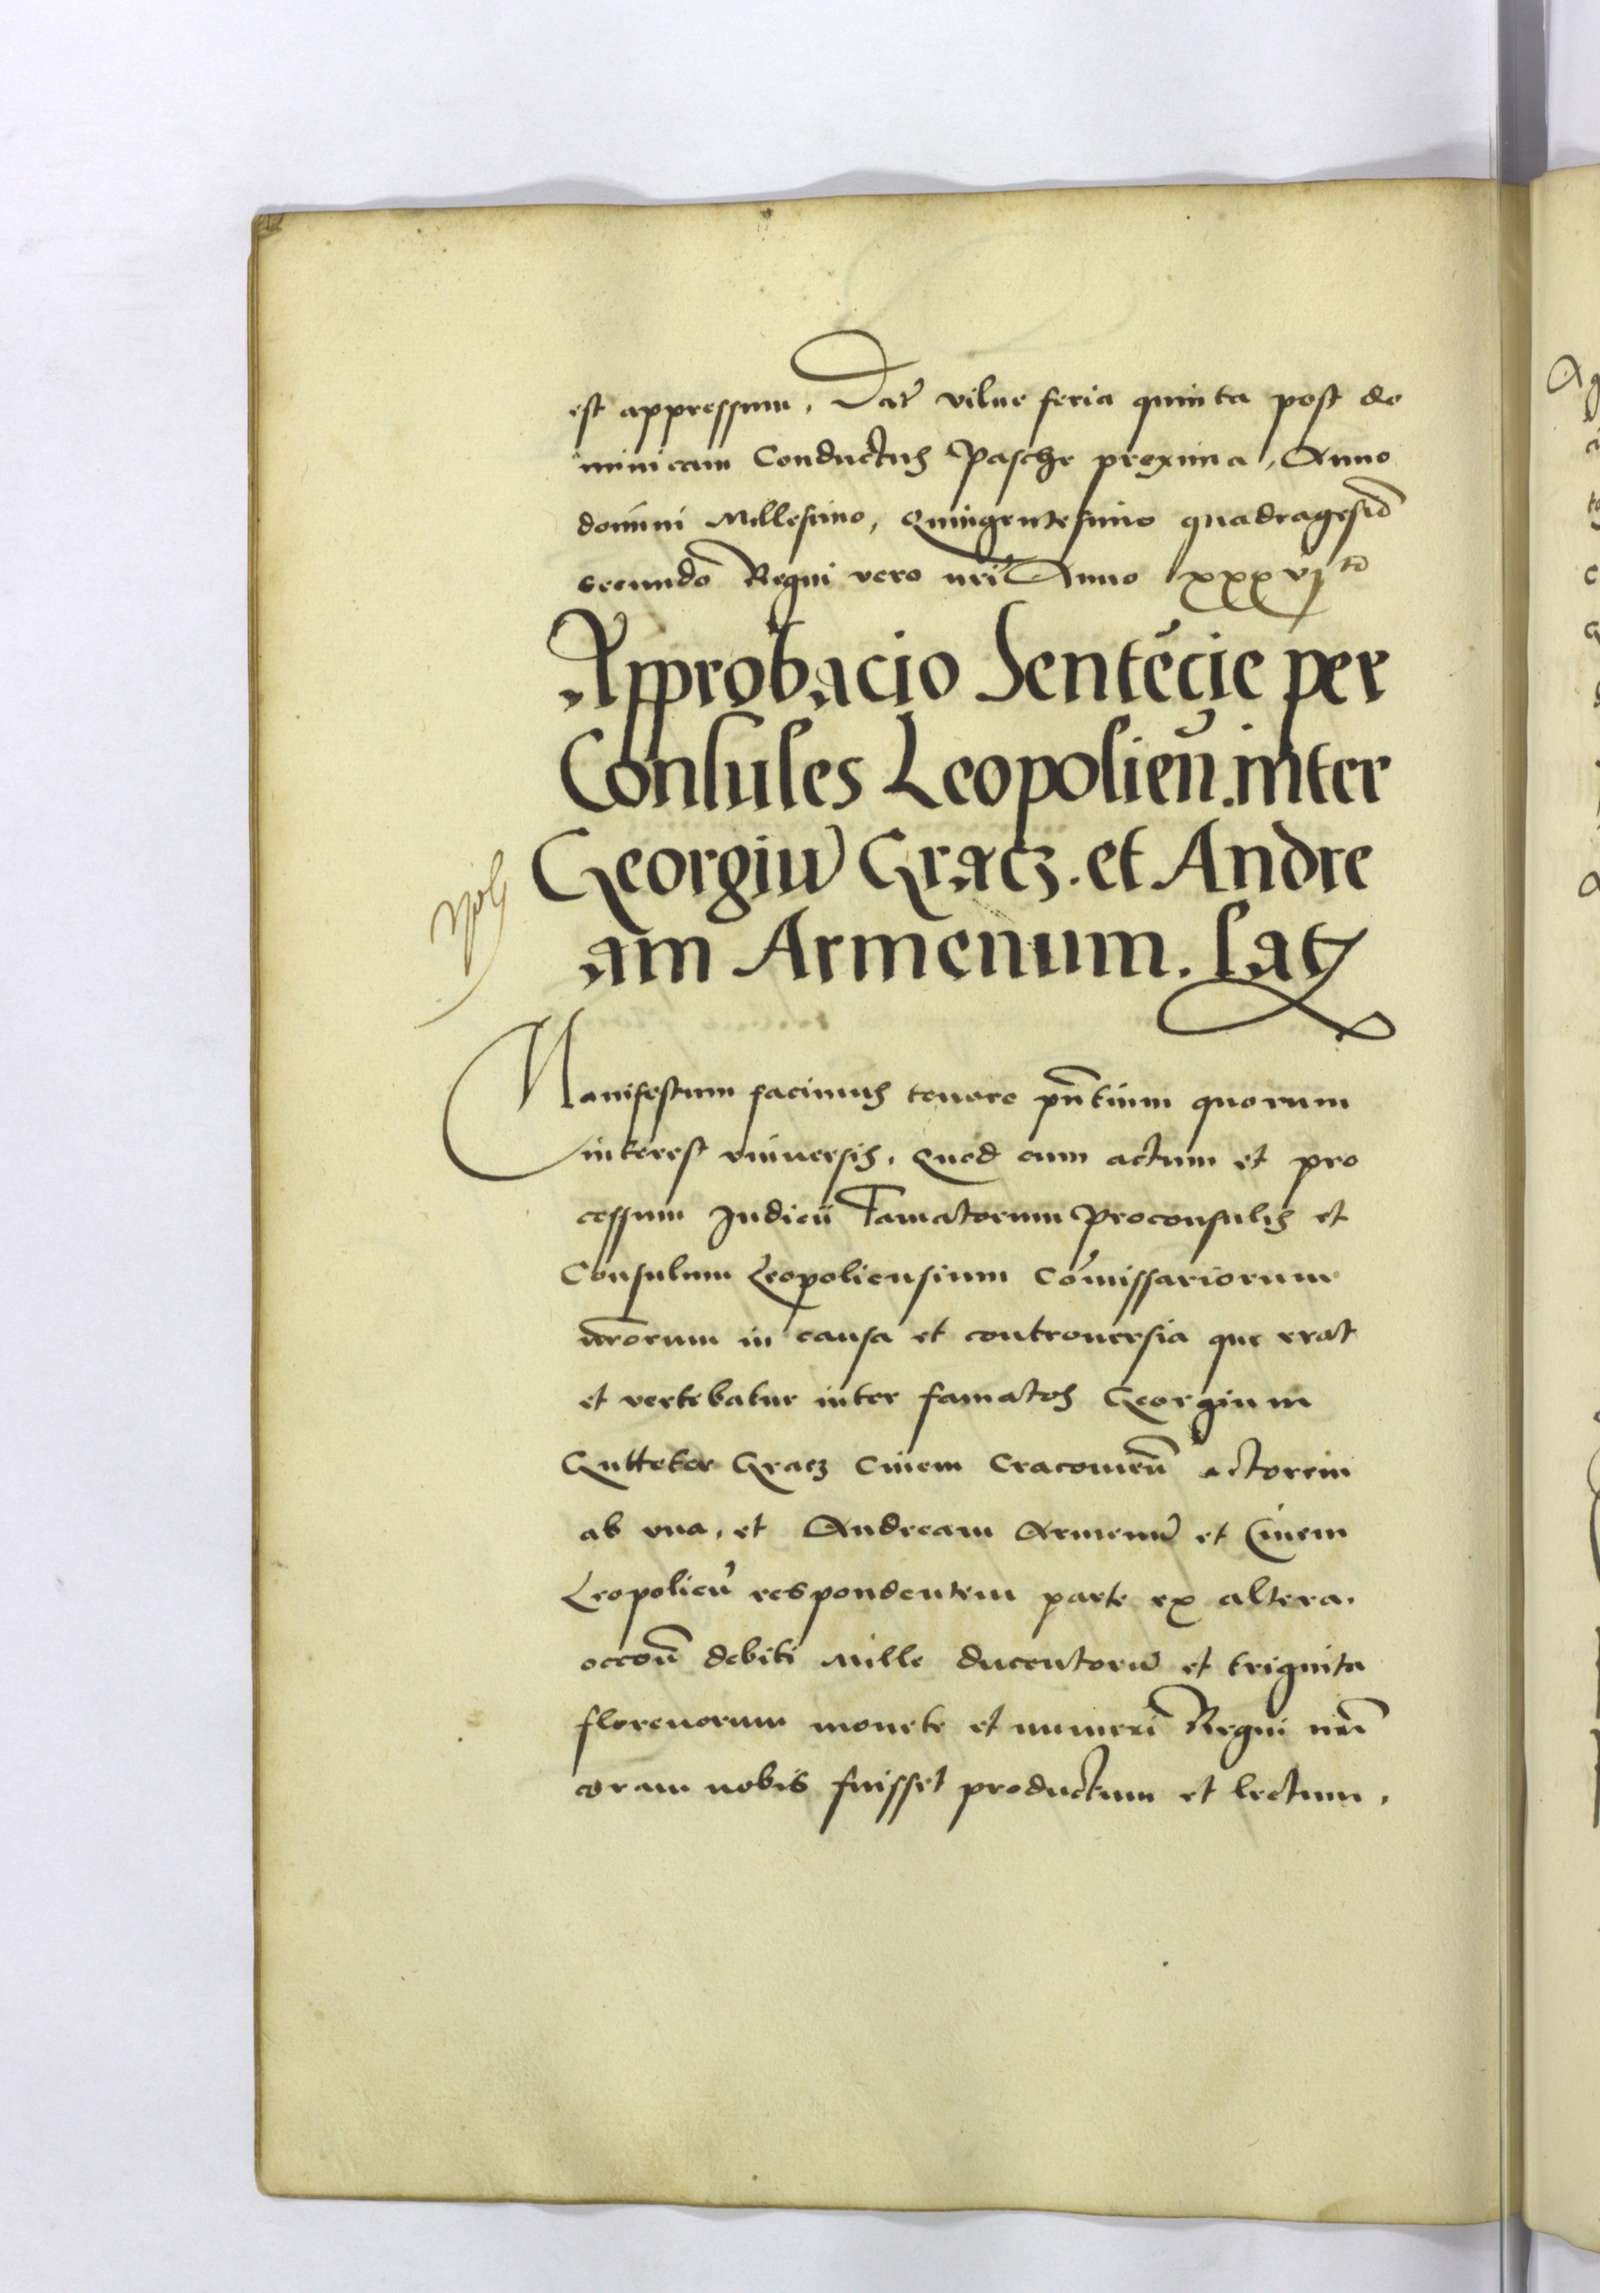 est appressum. Dat̃ vilne feria quinta post do
minicam Conductus Pasche proxima, Anno
domini Millesimo, Quingentesimo quadragesiō
secundo Regni vero nr̃i Anno xxxvj to
Approbacio Sentēcie per
Consules Leopolieñ. inter
Georgiū Gracz. et Andre
am Armenum. Lat
Manifestum facimus tenore pñtium quorum
interest vniuersis. Quod cum actum et pro
cessum Judicii Famatorum Proconsulis et
Consulum Leopoliensium Cōmissariorum
nr̃orum in causa et controuersia que erat
et vertebatur inter famatos Georgium
Gutteter Gracz Ciuem Cracouieñ actorem
ab vna. et Andream Armenū et Ciuem
Leopolieñ respondentem parte ex altera.
occoñe debiti Mille ducentorū et triginta
florenorum monete et numeri Regni nr̃i
coram nobis fuisset productum et lectum.